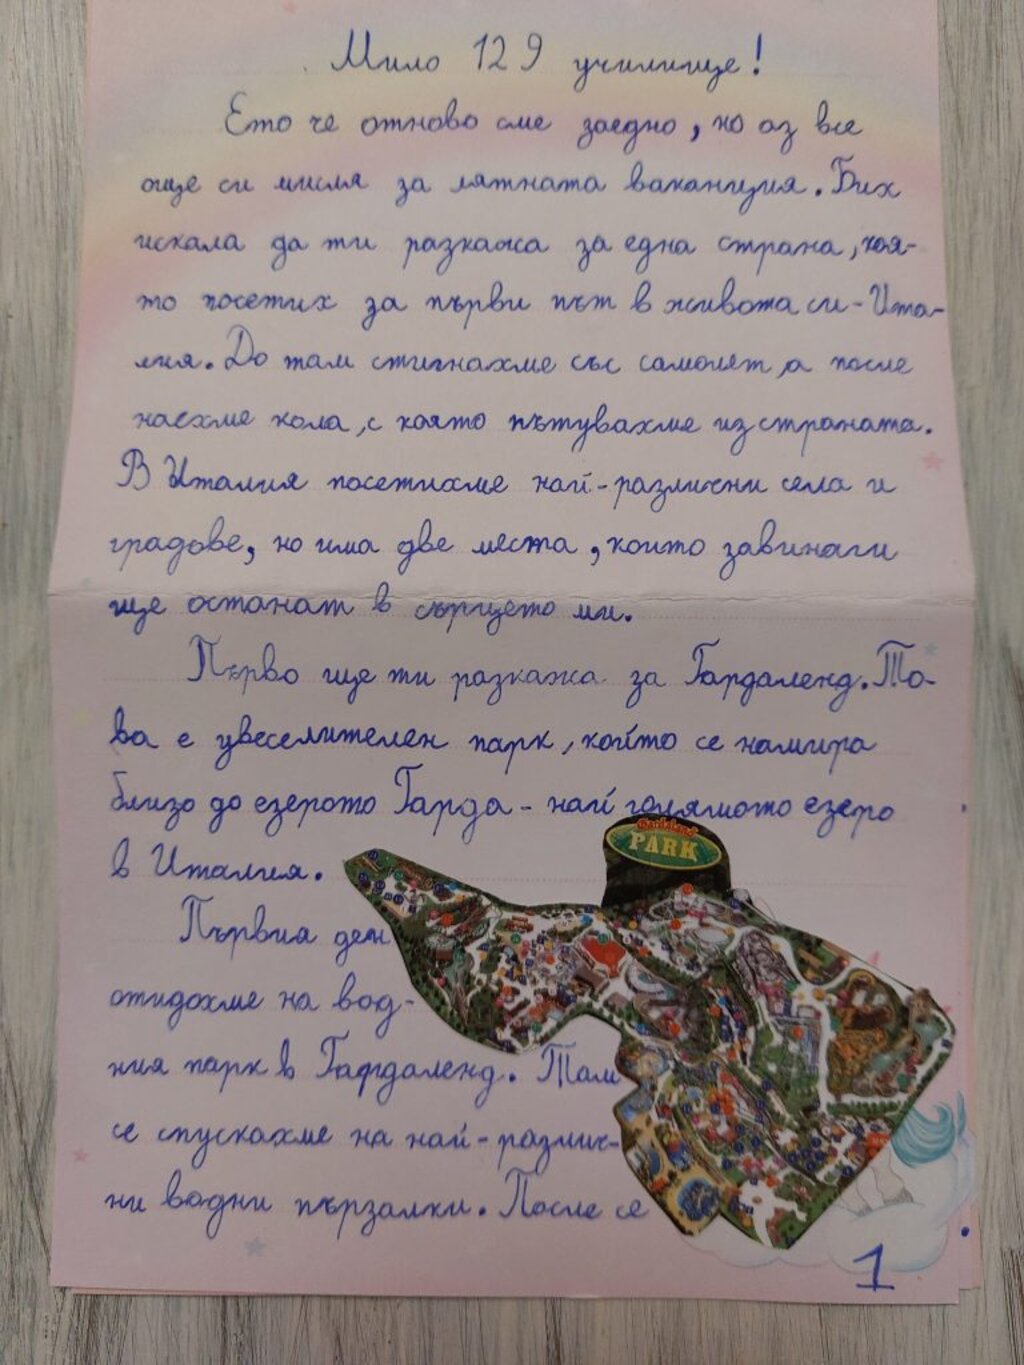 Мило 129 училище!
Ето че отново сме заедно, но аз все
още си мисля за лятната ваканция. Бих
искала да ти разкажа за една страна, коя-
то посетих за първи път в живота си - Ита-
лия. До там стигнахме със самолет, а после
наехме кола, с която пътувахме из страната.
В Италия посетихме най-различни села и
градове, но има две места, които завинаги
ще останат в сърцето ми.
Първо ще ти разкажа за Гардаленд. То-
ва е увеселителен парк, който се намира
близо до езерото Гарда - най голямото езеро
в Италия.
Gardaland
PARK
Първия ден
отидохме на вод-
ния парк в Гардаленд. Там
се спускахме на най-различ-
ни водни пързалки. После се
1